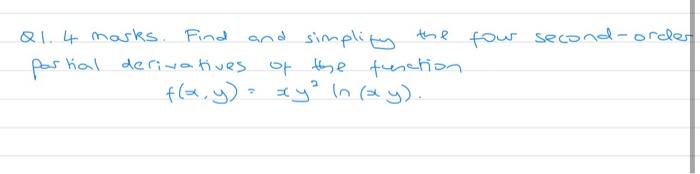 Q1. 4 marks. Find and simplify the four second-order
partial derivatives of the function
f(x,y) = xy² ln(xy).